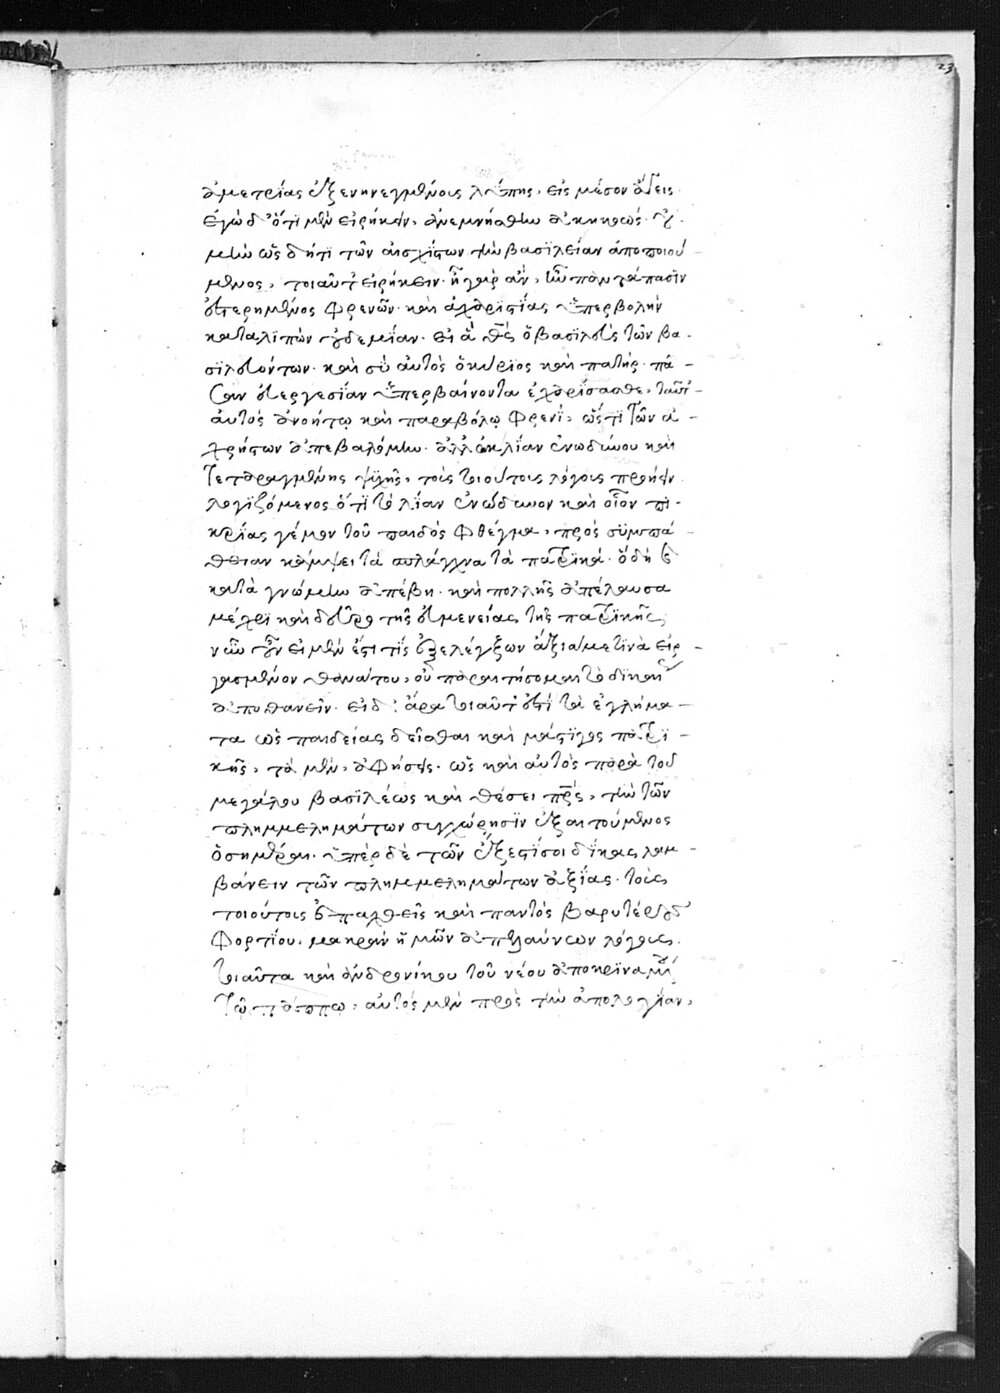 23
ἀμετρίας ἐξενηνεγμένοις λύπης, εἰς μέσον ἄγεις.
ἐγὼ δ' ὅτι μὲν εἰρήκειν, ἀνεμνήσθην ἀκηκοώς.
μὴν ὡς δή τι τῶν αἰσχίστων τὴν βασιλείαν ἀποποιού-
μενος, τοιαῦτ' εἰρήκειν. ἦ γὰρ ἂν, ἦν παντάπασιν
ἐστερημένος φρενῶν. καὶ ἀχαριστίας ὑπερβολὴν
καταλιπὼν οὐδεμίαν. εἰ ἃ θεὸς ὁ βασιλεὺς τῶν βα-
σιλευόντων. καὶ σὺ αὐτὸς ὁ κύριος καὶ πατὴρ πᾶ-
σαν εὐεργεσίαν ὑπερβαίνοντα ἐχαρίσασθε, ταῦτ'
αὐτὸς ἀνοήτῳ καὶ παραβόλῳ φρενὶ, ὥς τι τῶν ἀ-
χρήστων ἀπεβαλόμην. ἀλλ' ἐκ λίαν ἐνωδύνου καὶ
τεταραγμένης ψυχῆς, τοῖς τοιούτοις λόγοις προήχθην
λογιζόμενος ὅτι τὸ λίαν ἐνώδυνον καὶ οἷον πι-
κρίας γέμον τοῦ παιδὸς φθέγμα, πρὸς συμπά-
θειαν κάμψει τὰ σπλάγχνα τὰ πατρικά. ὃ δὴ καὶ
κατὰ γνώμην ἀπέβη. καὶ πολλῆς ἀπέλαυσα
μέχρι καὶ δεῦρο τῆς εὐμενείας τῆς πατρικῆς.
νῦν οὖν εἰ μὲν ἔστι τίς ἐξελέγξων ἄξιά με τινὰ εἰρ-
γασμένον θανάτου, οὐ παραιτήσομαι τὸ δίκαιον
ἀποθανεῖν. εἰ δ' ἄρα τοιαῦτ' ἐστὶ τὰ ἐγκλήμα-
τα ὡς παιδείας δεῖσθαι καὶ μάστιγος πατρι-
κῆς, τὰ μὲν, ἀφήσεις. ὡς καὶ αὐτὸς παρὰ τοῦ
μεγάλου βασιλέως καὶ θέσει πατρὸς, τὴν τῶν
πλημμελημάτων συγχώρησιν ἐξαιτούμενος
ὁσημέραι. ὑπὲρ δὲ τῶν ἔξεστί σοι δίκας λαμ-
βάνειν τῶν πλημμελημάτων ἀξίας. τοῖς
τοιούτοις ἐπαχθεῖς καὶ παντὸς βαρυτέρους
φορτίου. μακρὰν ἡμῶν ἀπελαύνων λόγους.
τοιαῦτα καὶ ἀνδρονίκου τοῦ νέου ἀποκριναμένου
τῷ πάππῳ, αὐτὸς μὲν πρὸς τὴν ἀπολογίαν,